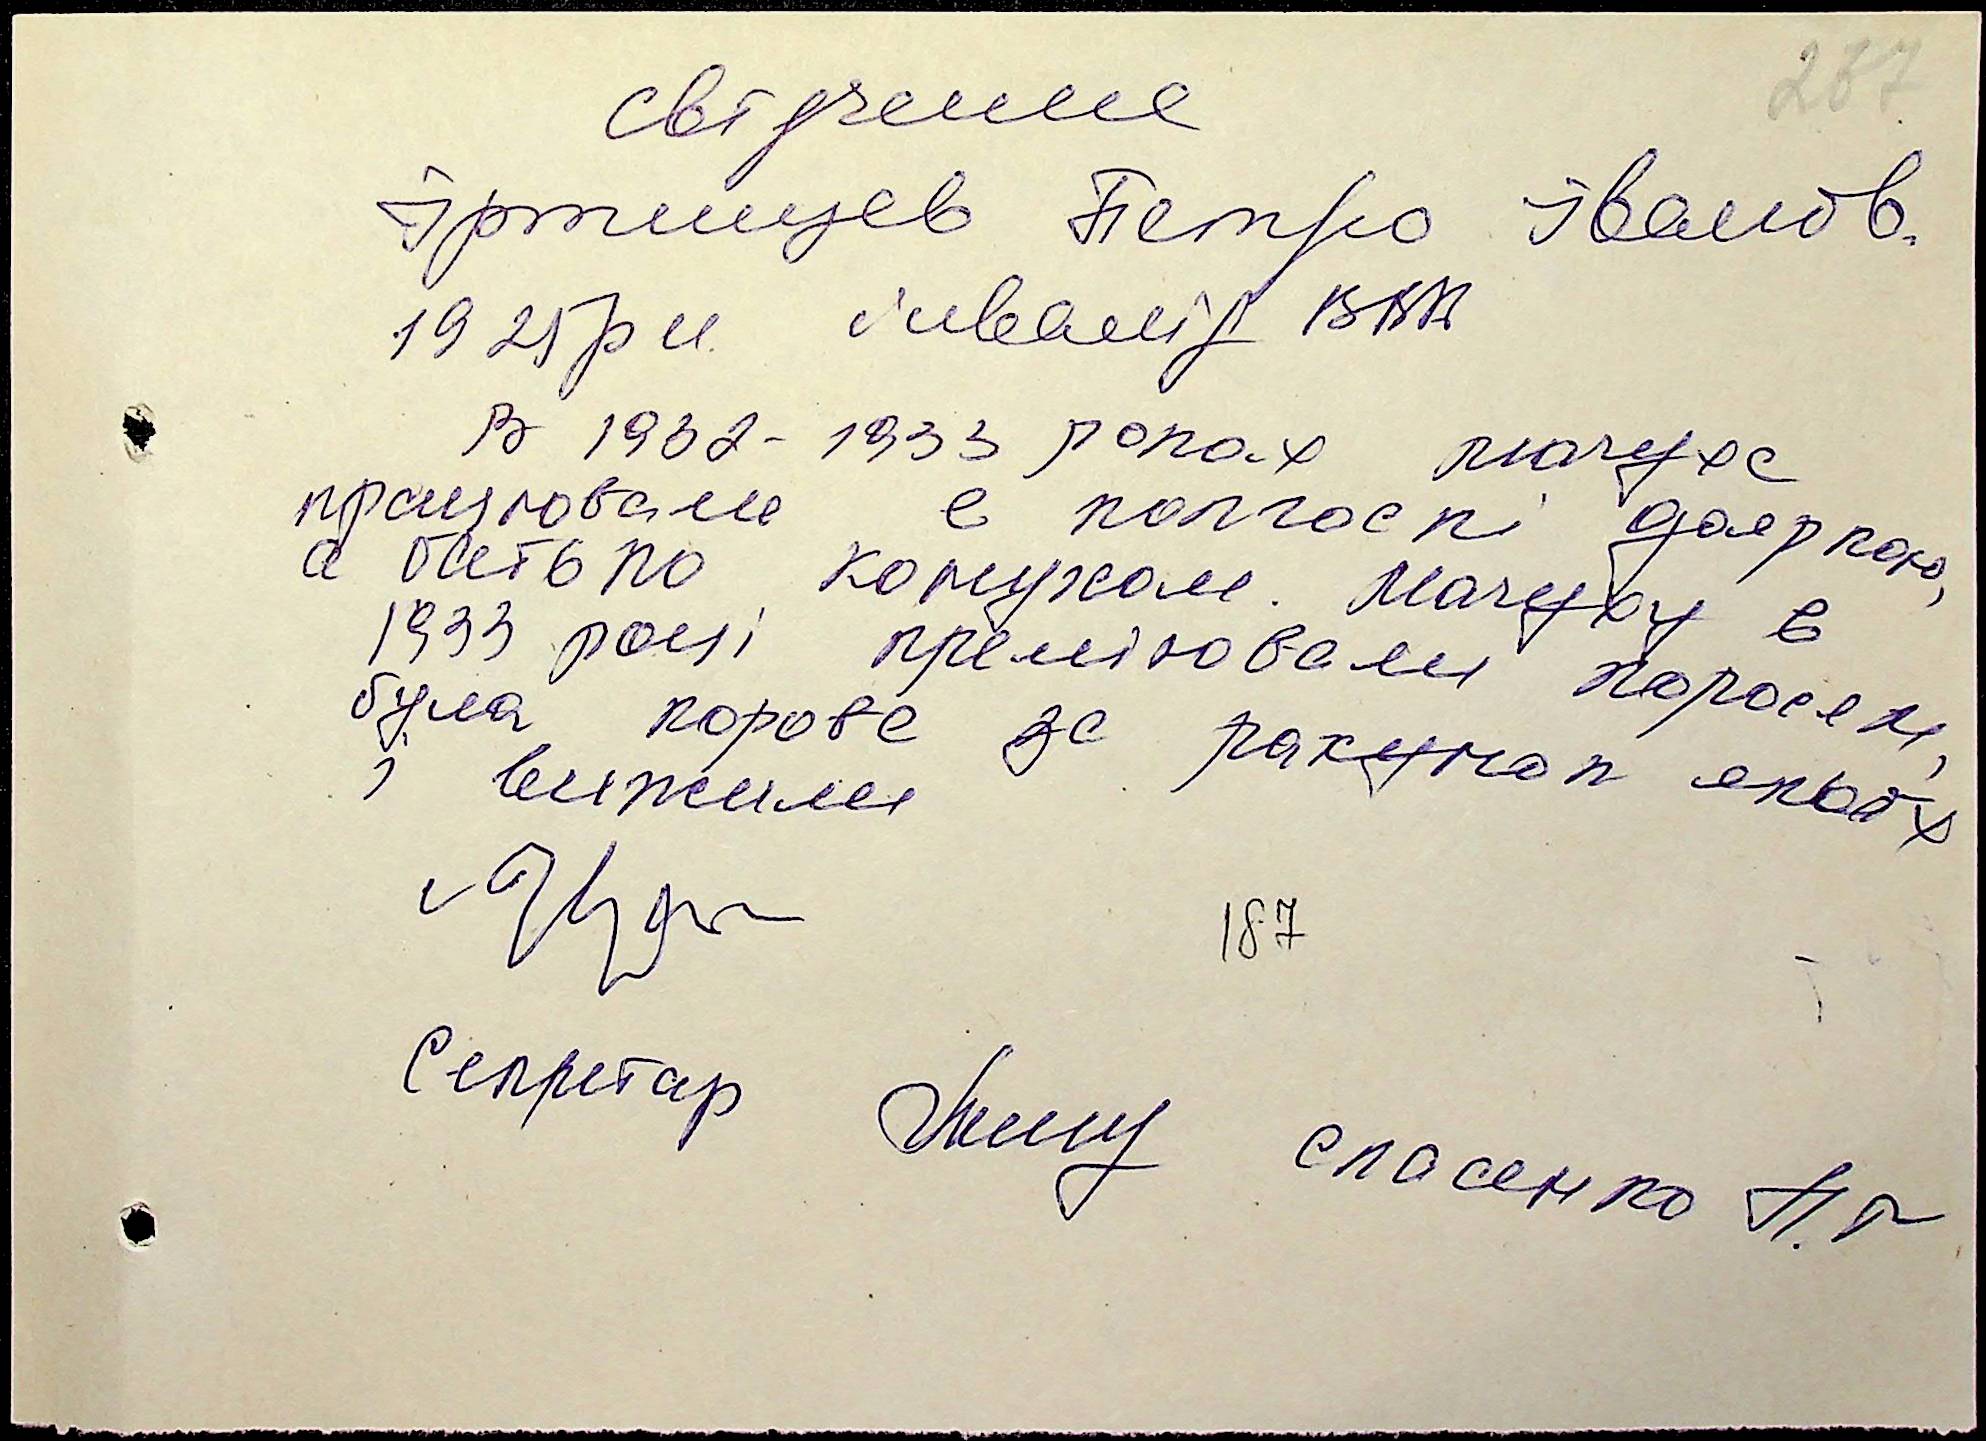 287
Свідчення
Іртишцев Петро Іванов.
1925 р н. інвалід ВВВ
В 1932-1933 роках мачуха
працювала в колгоспі дояркою,
а батько конухом. Мачуху в
1933 році преміювали поросям,
була корова за рахунок яких
і вижили
187
Секретар Спасенко П. Г